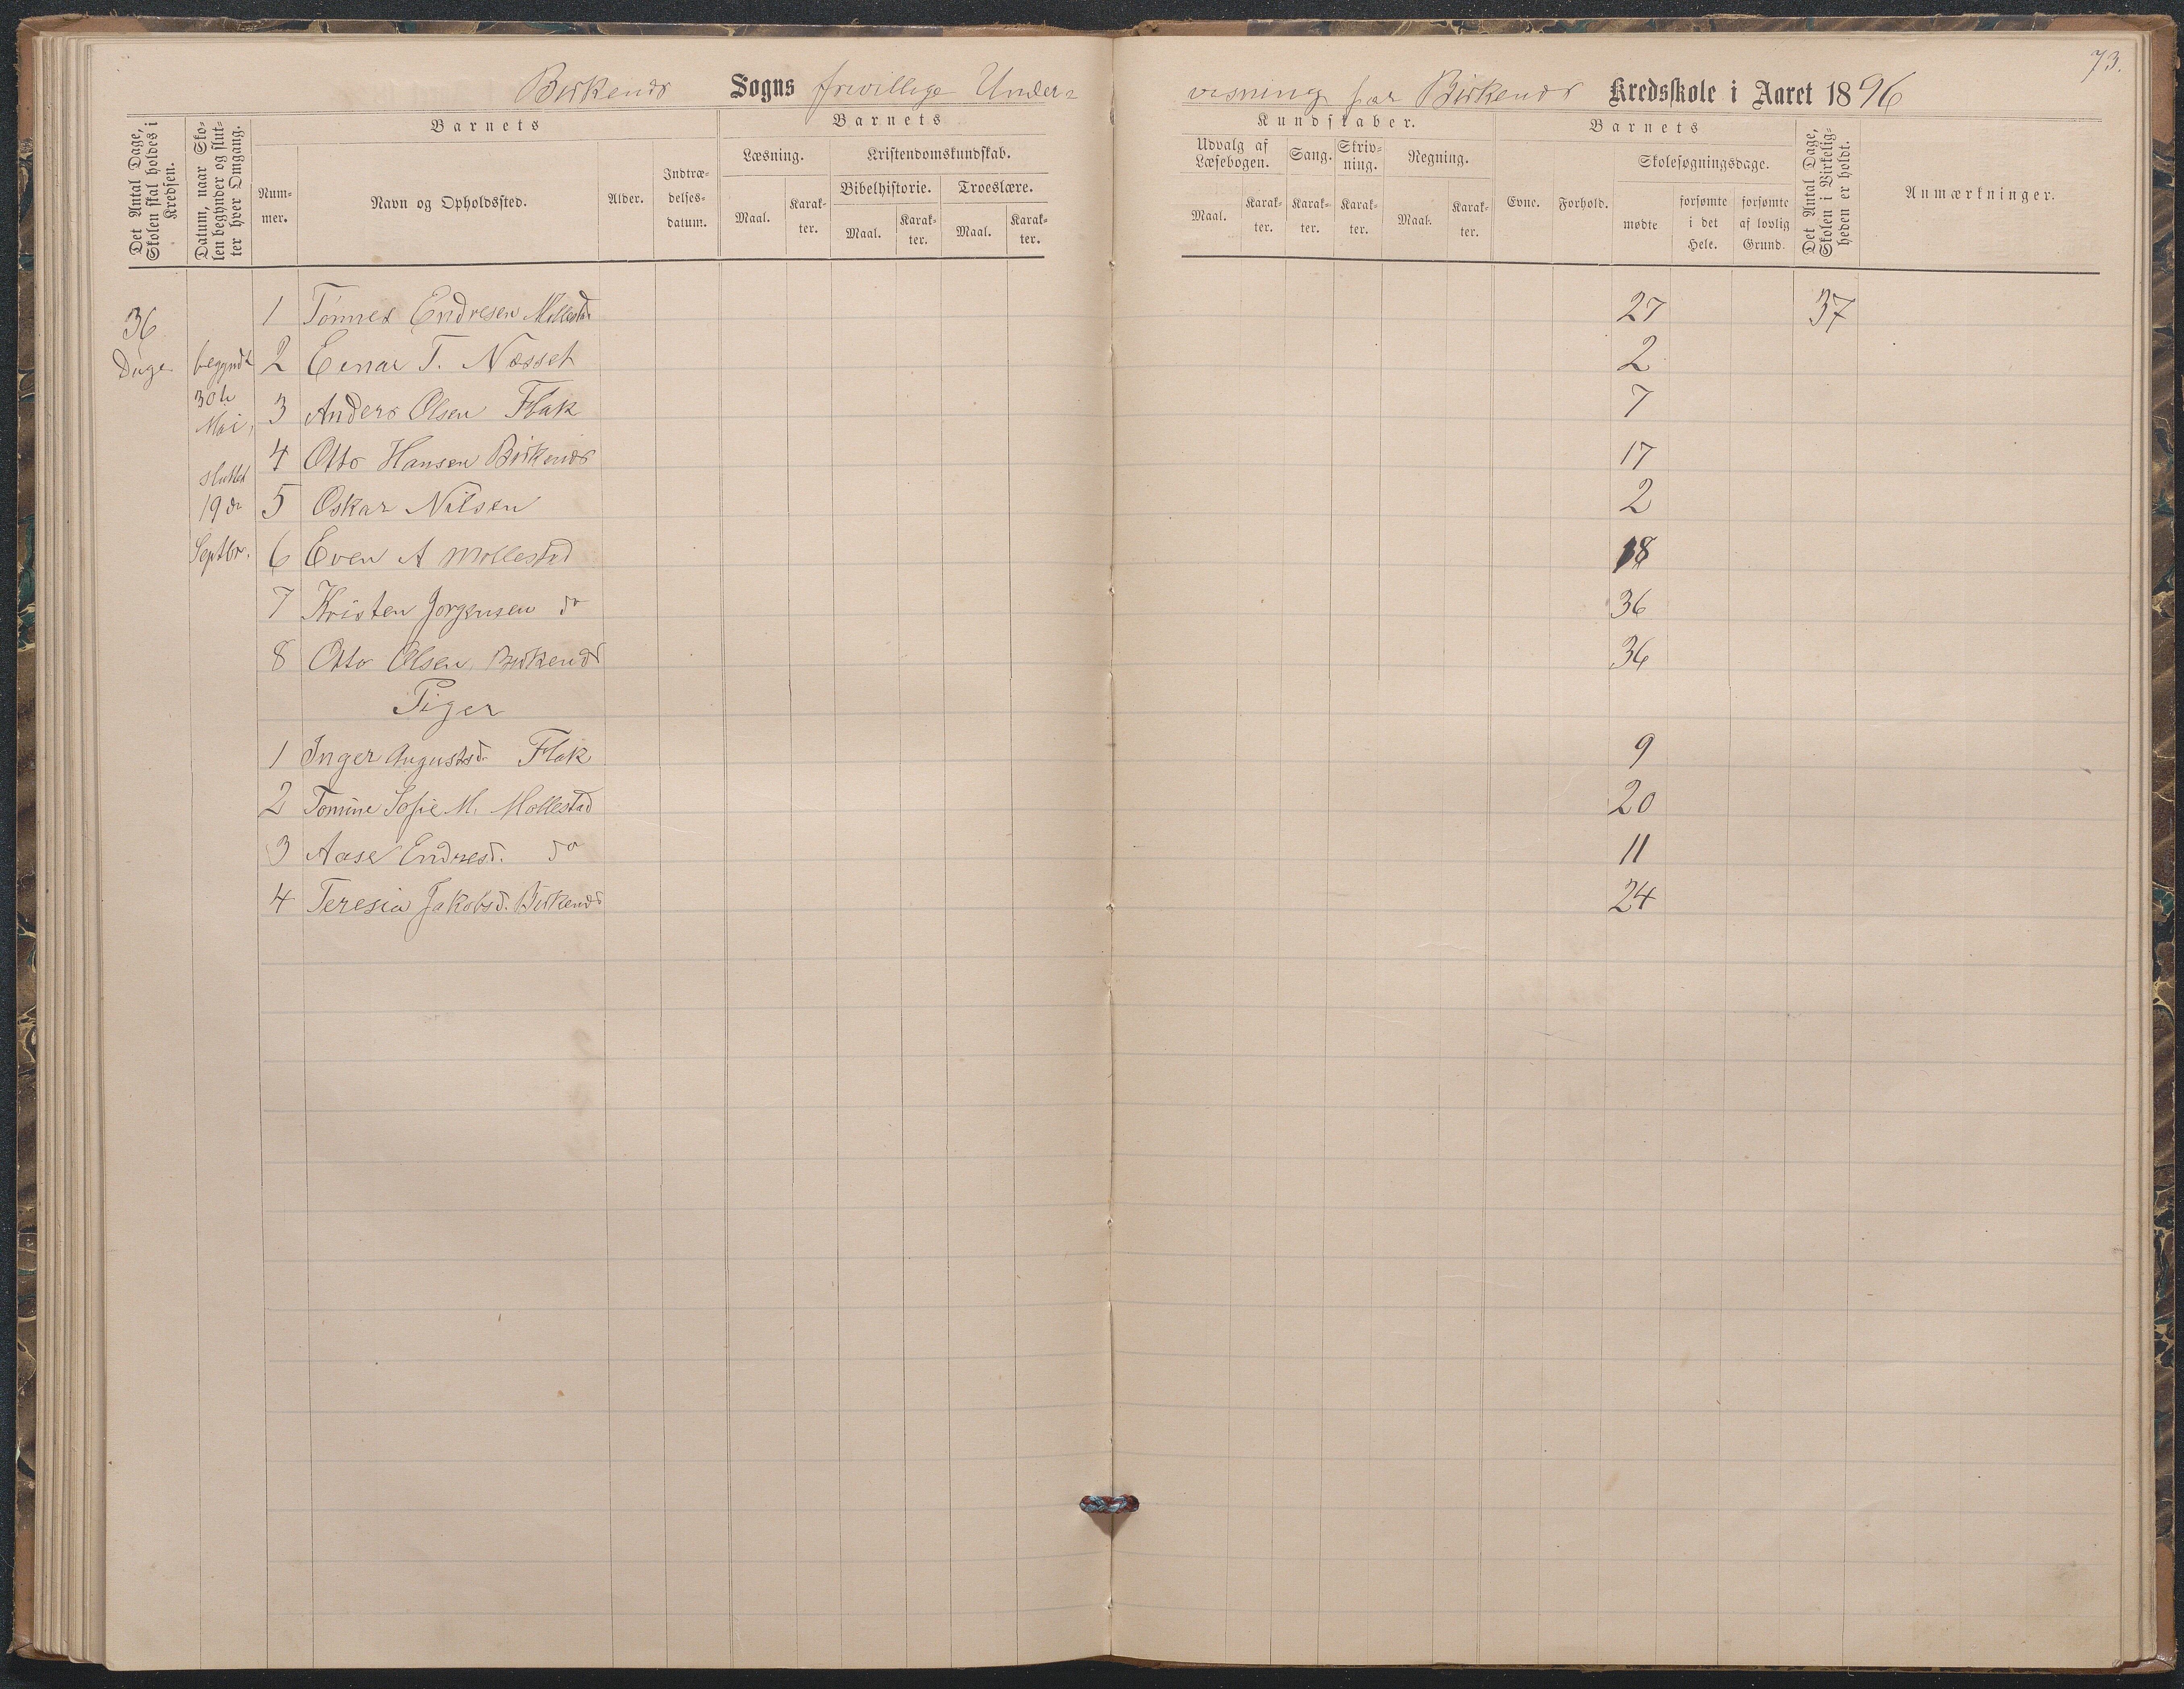 73.
Birkenes Sogns frivillige Under-
visning for Birkenes Kredsskole i Aaret 1896
Det Antal Dage, Skolen skal holdes i Kredsen.
Datum, naar Skolen begynder og slutter hver Omgang.
Barnets
Nummer.
Navn og Opholdssted.
Alder.
Indtrædelsesdatum.
Barnets
Læsning.
Maal.
Karakter.
Kristendomskundskab.
Bibelhistorie.
Maal.
Karakter.
Troeslære.
Maal.
Karakter.
Kundskaber.
Udvalg af Læsebogen.
Maal.
Karakter.
Sang.
Karakter.
Skrivning.
Karakter.
Regning.
Maal.
Karakter.
Barnets
Evne.
Forhold.
Skolesøgningsdage.
mødte
forsømte i det Hele.
forsømte af lovlig Grund.
Det Antal Dage, Skolen i Virkeligheden er holdt.
Anmærkninger.
36
Dage
begyndt
30te
Mai,
sluttet
19de
Septbr.
1 Tønnes Endresen Mollestad 27 37
2 Einar T. Næsset 2
3 Anders Olsen Flak 7
4 Otto Hansen Birkenes 17
5 Oskar Nilsen 2
6 Even A Mollestad 18
7 Kristen Jørgensen do 36
8 Otto Olsen, Birkenes 36
Piger
1 Inger Augustsd. Flak 9
2 Tomine Sofie M. Mollestad 20
3 Aase Endresd. do 11
4 Teresia Jakobsd. Birkenes 24